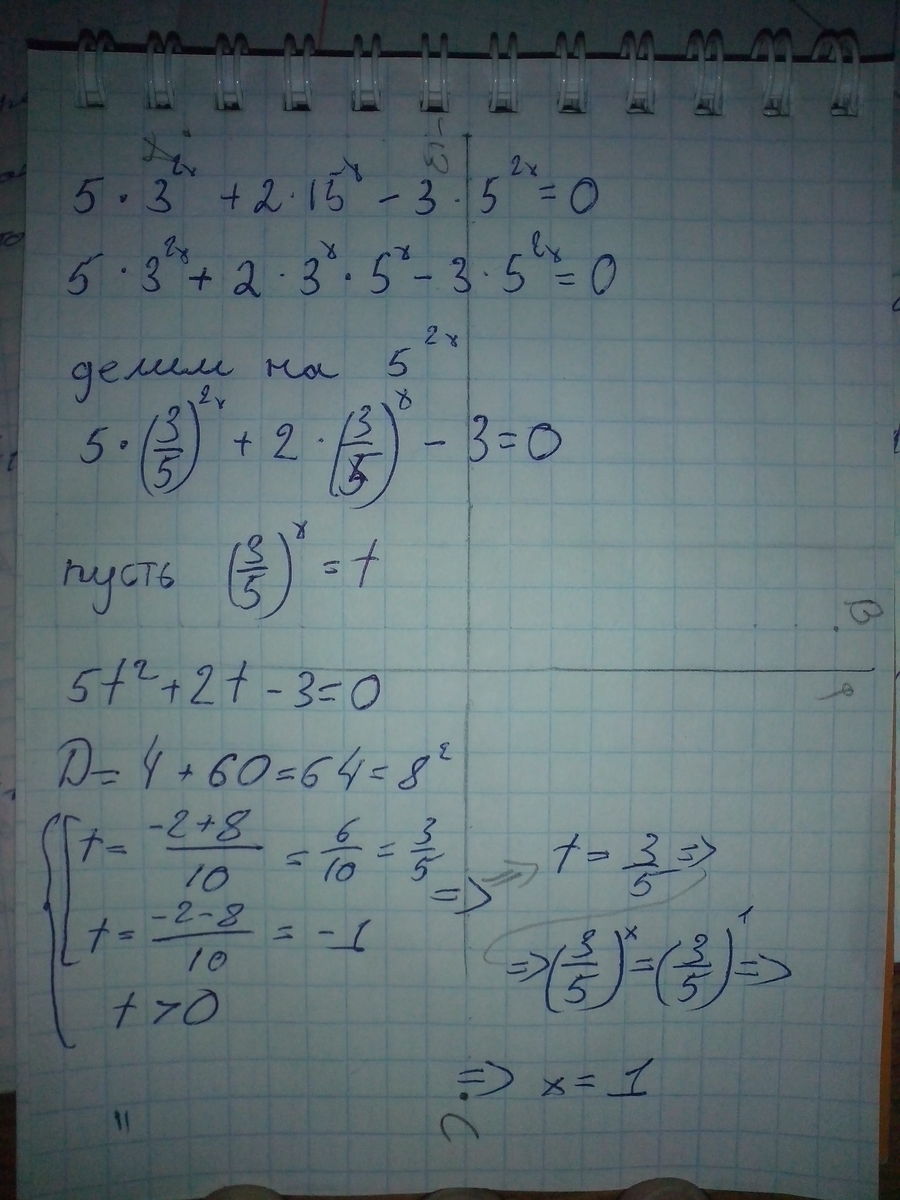 5 · 3^{2x} + 2 · 15^x - 3 · 5^{2x} = 0
5 · 3^{2x} + 2 · 3^x · 5^x - 3 · 5^{2x} = 0
делим на 5^{2x}
5 · (3/5)^{2x} + 2 · (3/5)^x - 3 = 0
пусть (3/5)^x = t
B
5t² + 2t - 3 = 0
D = 4 + 60 = 64 = 8²
t = (-2+8)/10 = 6/10 = 3/5 => t = 3/5 =>
t = (-2-8)/10 = -1
=> (3/5)^x = (3/5)^1 =>
t > 0
=> x = 1
C
11